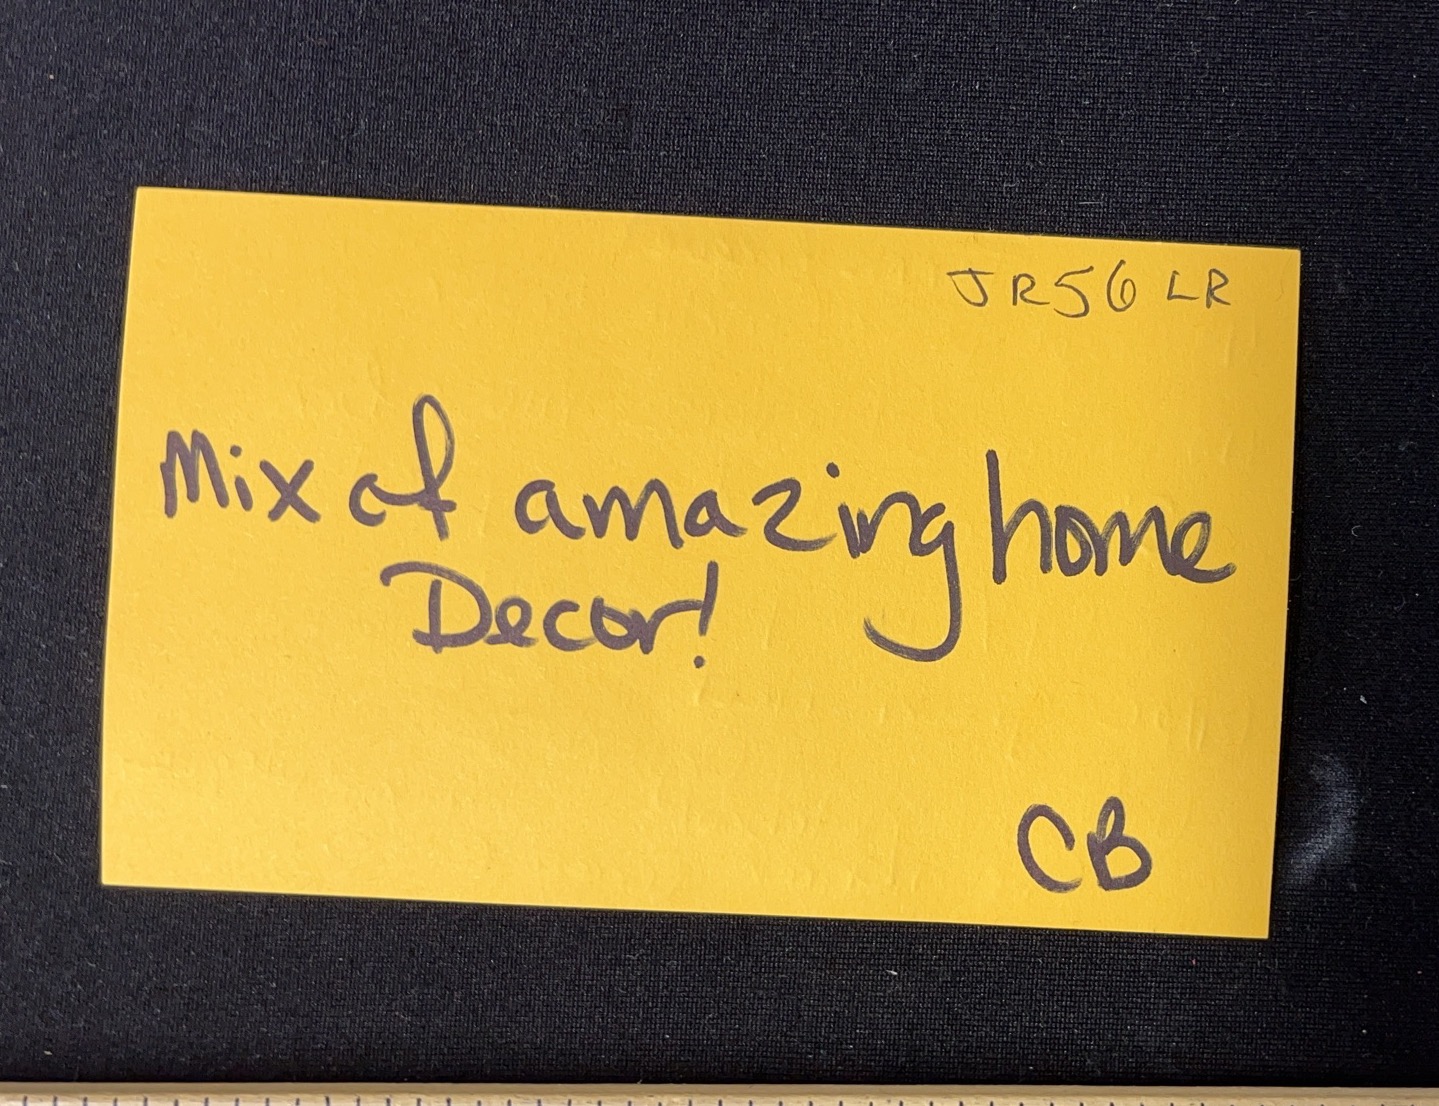 JR56 LR
Mix of amazing home
Decor!
CB